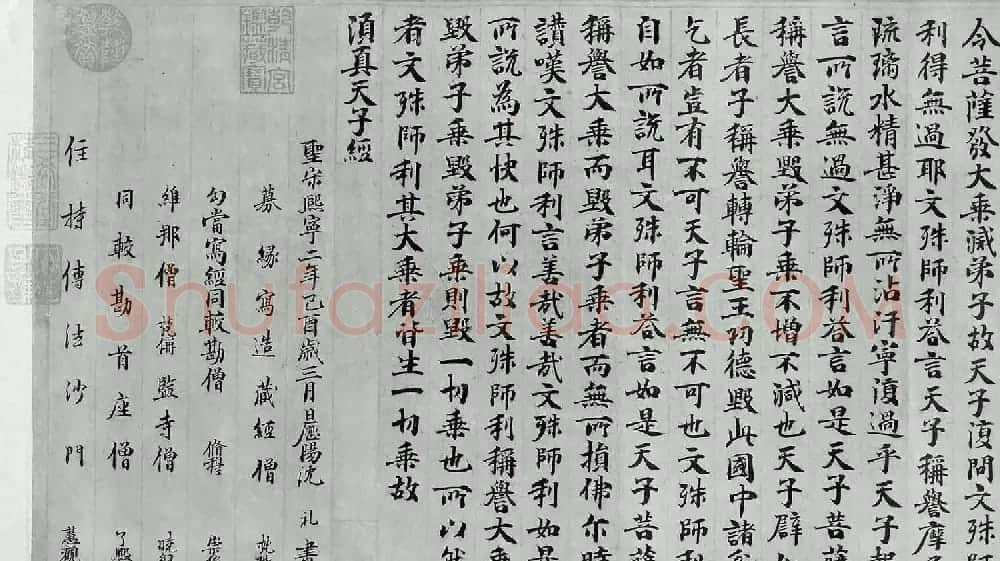 今菩薩發大乘滅弟子故天子湏問文殊師
利得無過耶文殊師利荅言天子稱譽摩
琉璃水精甚淨無所沾汙寧湏過乎天子報
言所說無過文殊師利荅言如是天子菩薩
稱譽大乘毀弟子乘不增不減也天子辟
長者子稱譽轉輪聖王功德毀此國中諸
乞者豈有不可天子言無不可也文殊師利
自如所說耳文殊師利荅言如是天子菩薩
稱譽大乘而毀弟子乘者而無所損佛尒時
讃嘆文殊師利言善哉善哉文殊師利如是
所說為其快也何以故文殊師利稱譽大乘
毀弟子乘毀弟子乘則毀一切乘也所以
者文殊師利其大乘者皆生一切乘故
湏真天子經
聖宋熙寧二年己酉歲三月旦歷陽沈 礼 書
募緣寫造藏經僧
勾當寫經同較勘僧
維那僧 監寺僧
同較勘首座僧 了
住持傳法沙門
乾清宮鑒藏寶
Shufaziliao.COM